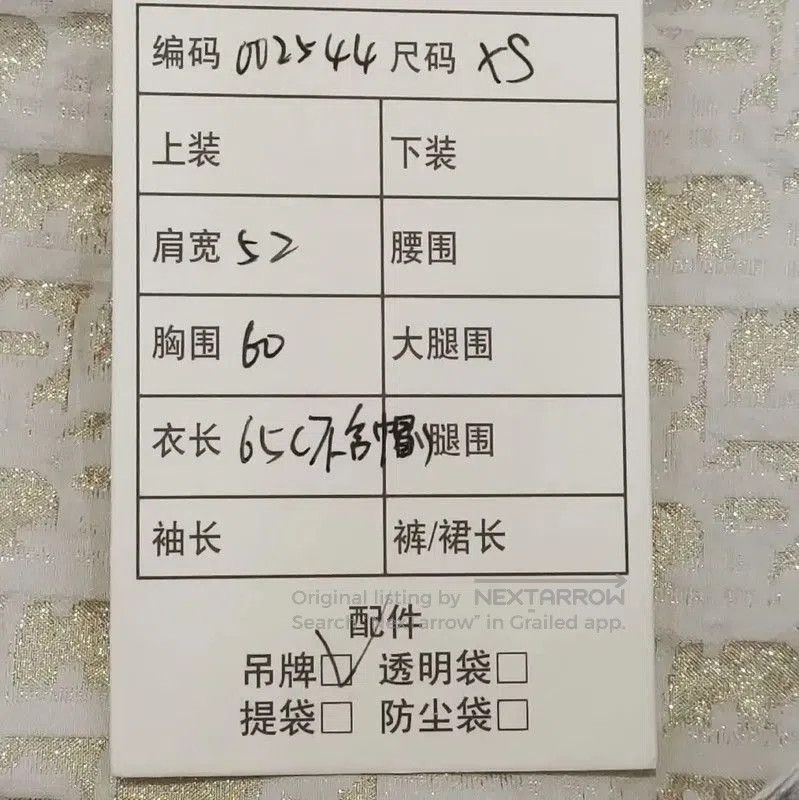 编码 002544 尺码 XS
上装 下装
肩宽 52 腰围
胸围 60 大腿围
衣长 65(不含帽) 腿围
袖长 裤/裙长
Original listing by NEXTARROW
配件
Search "Nextarrow" in Grailed app.
吊牌 透明袋
提袋 防尘袋